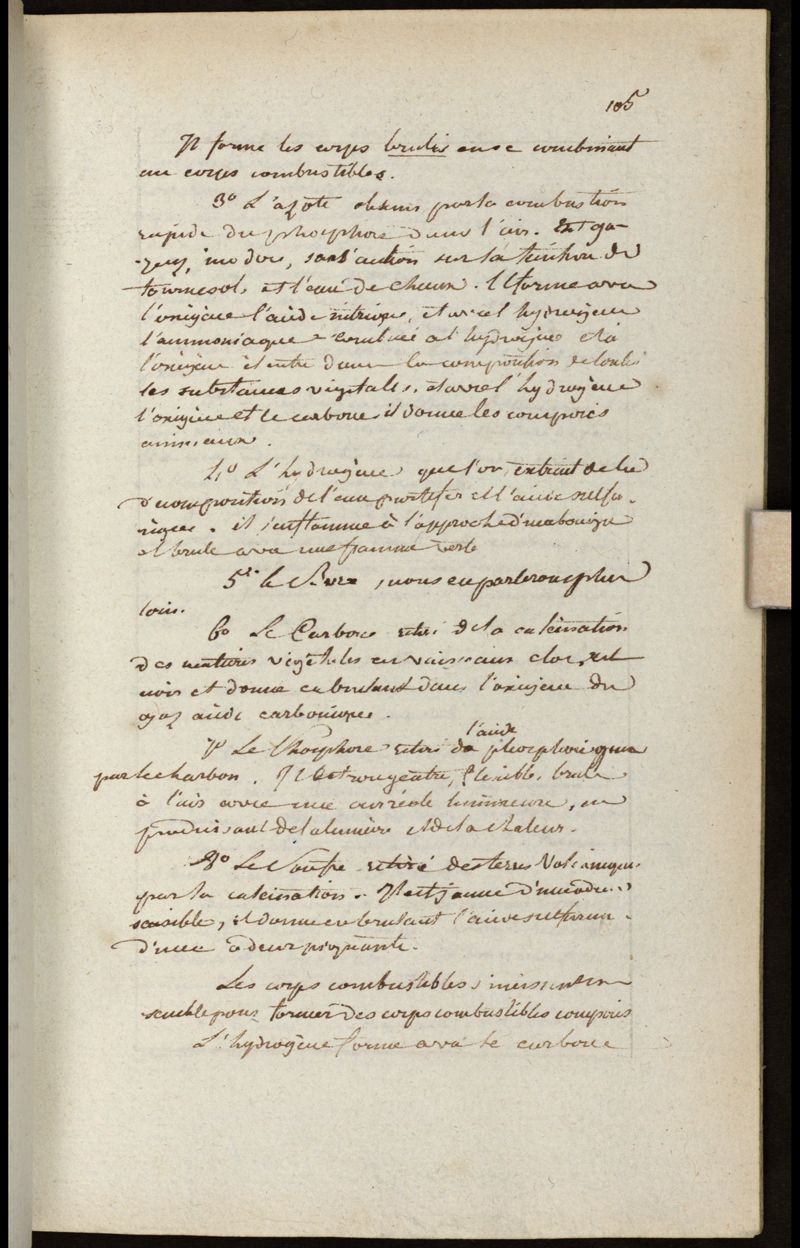 105
Il forme les corps brulés en se combinant
au corps combustibles.
3º L'azote obtenu par la combustion
rapide du phosphore dans l'air. Est ga-
-zeux, inodore, sans action sur la teinture de
tournesol, et l'eau de chaux. Il forme avec
l'oxigène l'acide nitrique, et avec l'hydrogène
l'ammoniaque combiné a l'hydrogène et à
l'oxigène il entre dans la composition de toutes
les substances végétales, et avec l'hydrogène
l'oxigène et le carbone il donne les composés
animaux.
4º L'hydrogène que l'on extrait de la
décomposition de l'eau par le fer et l'acide sulfu-
rique. il s'enflamme à l'approche d'une bougie
et brule avec une flamme verte
5º le , nous en parlerons plus
loin.
6º Le Carbone retiré de la calcination
des matières végétales en vaisseaux clos, est
noir et donne en brulant dans l'oxigène du
gaz acide carbonique.
7º Le Phosphore retiré de l'acide phosphorique
par le charbon. Il est rougeatre, flexible, brule
à l'air avec une auréole lumineuse, en
produisant de la lumière et de la chaleur.
8º Le Soufre retiré des terres Volcaniques
par la calcination. Il est jaune d'une odeur
sensible, il donne en brulant l'acide sulfureux
d'une odeur piquante.
Les corps combustibles s'unissent en-
semble pour former des corps combustibles composés
L'hydrogène forme avec le carbone